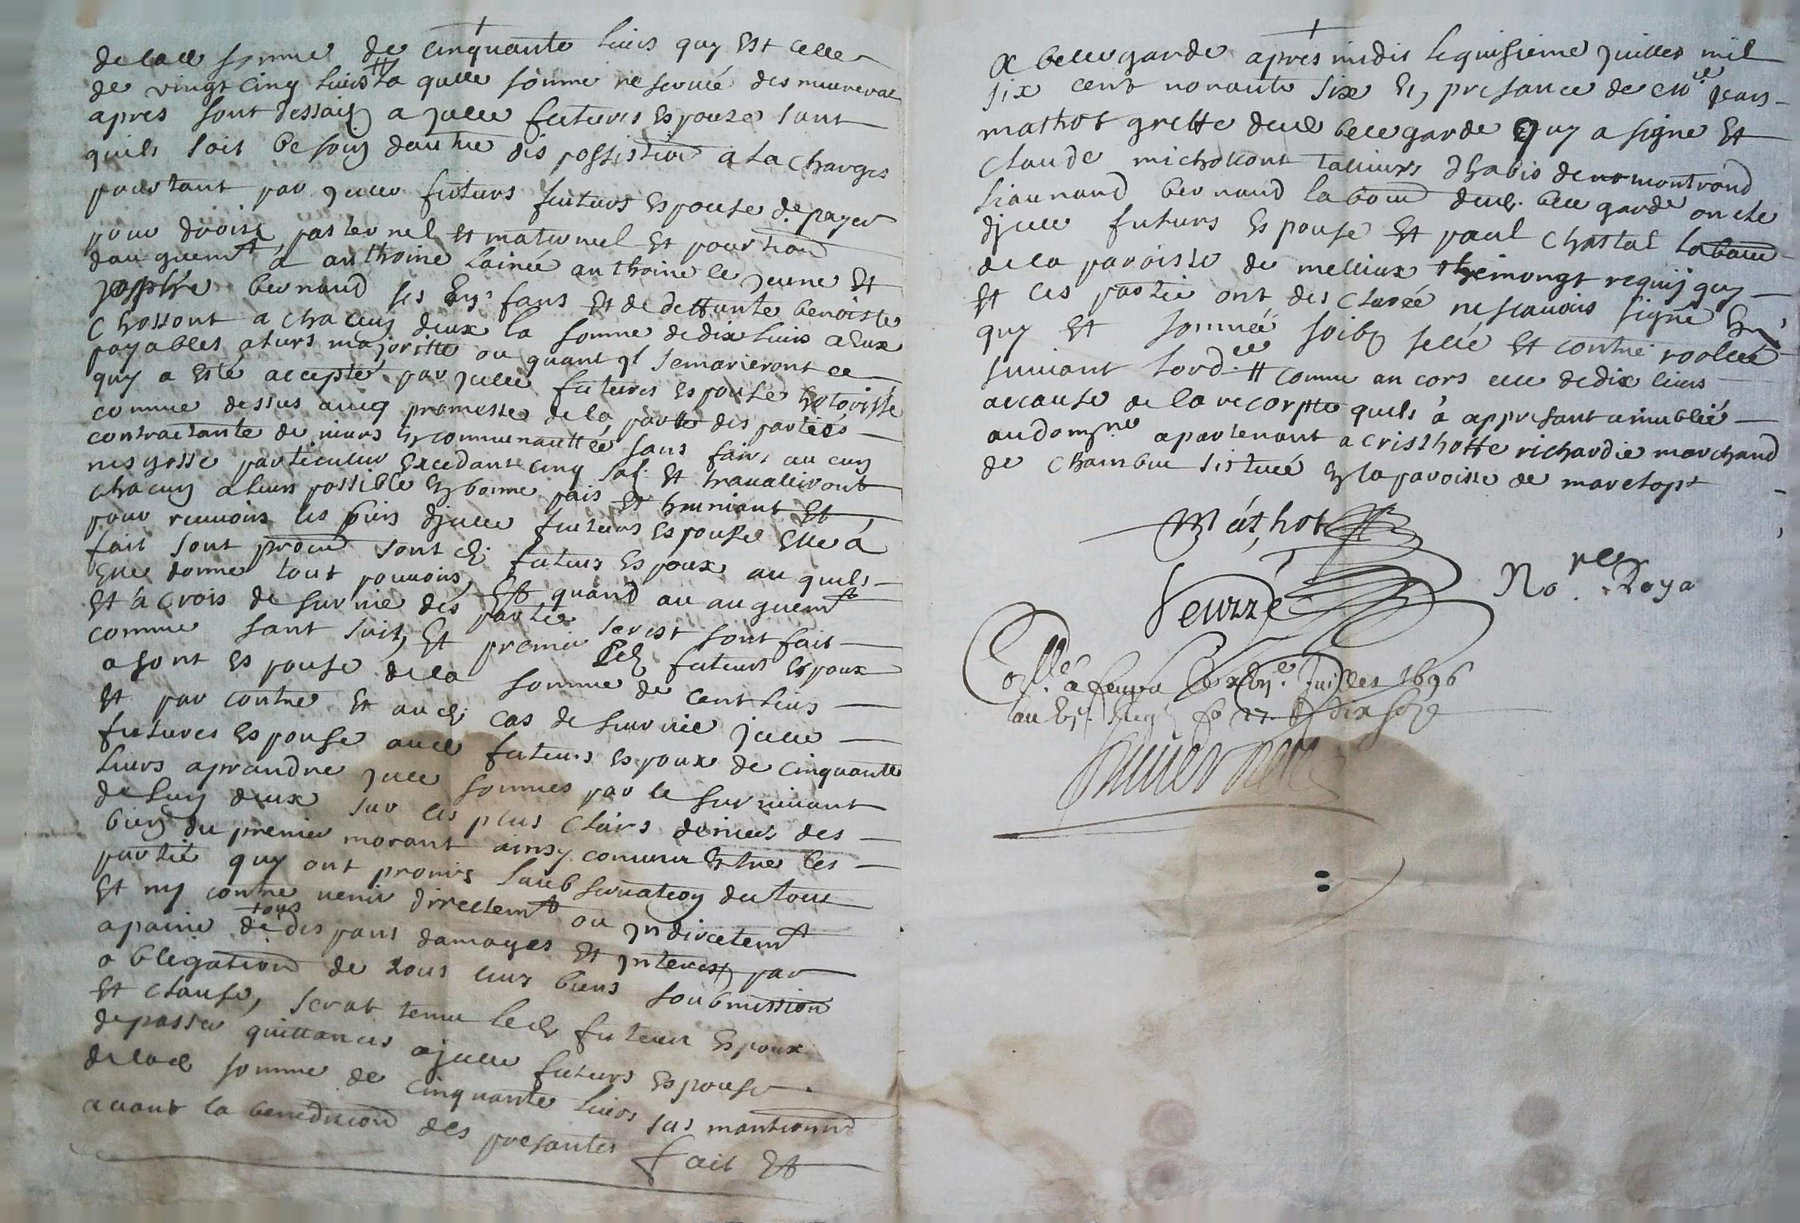 de lad somme de cinquante livres quy est celle
de vingt cinq livres la quelle somme
apres sont dessaiz a jcelle future espouse sans
quils soit besoing dautre dispossistion a la charges
pourtant par jcelle futurs futurs espouse de payer
pour droist pasternel et maternel et pourtion
daugment a anthoine lainée anthoine le jeune et
josphe bernand ses enfans et de deffunte benoiste
Chossont a chacung deux la somme de dix livres a eux
payables a leurs majoritte ou quant jl semarieront ce
quy a esté accepté par jcelle future espouse hotorissé
comme dessus avecq promesse de la part des parties
contractante de vivre en communauttée sans faire aucung
nesgosse particulier excedant cinq sol et travailleront
chacung a leurs possible en bonne pais et
pour recevoir les biens djcelle future espouse elle a
fait sont procur sont d futurs espoux auquels
elle donne tout pouvoirs, Et quand au augment
et acrois de survie des parties serest sont fait
comme sant suit, Et premier led futeurs espoux
a sont espouse de la somme de cent livres
et par contre et aud cas de survie jcelle
futures espouse aud futeurs espoux de cinquante
livres a prandre jcelle sommes par le survivant
desung deux sur les plus clairs deniers des
bien du premier morant ainsy convenu entre les
partié quy ont promis laubservation du tout
et ny contre venir directemt ou jndirectemt
a paine de tous despans damages et jnterest par
obligation de tous leurs biens soubmission
et clause, serat tenu led futeur espoux
de passer quittances a jcelle futurs espouse
de lad somme de cinquante livres sus mantionné
avant la benediction des presantes fait Et
a bellegarde apres midis le quisieme juillet mil
six cent nonante six En presance de mre jean
mathot greffe dud bellegarde quy a signe Et
Claude michollont tallieurs dhabis de montrond
bernand labour dud bellegarde oncle
djcelle futurs espouse Et paul Chastal labour
de la paroisse de meilieux requis quy
Et les partie ont desclarée ne scavoirs signé En
quy et sommée soibz sellé et contre roollée
suivant lord.ce # comme ancors elle de dix livres
a cause de la recorpte quils à appresant amublié
audomne apartenant a Cristhoffe richardie marchand
de Chambeu sistueé en la paroisse de marclopt
Mathot
No.re Roya
Coll.é a le juillet 1696